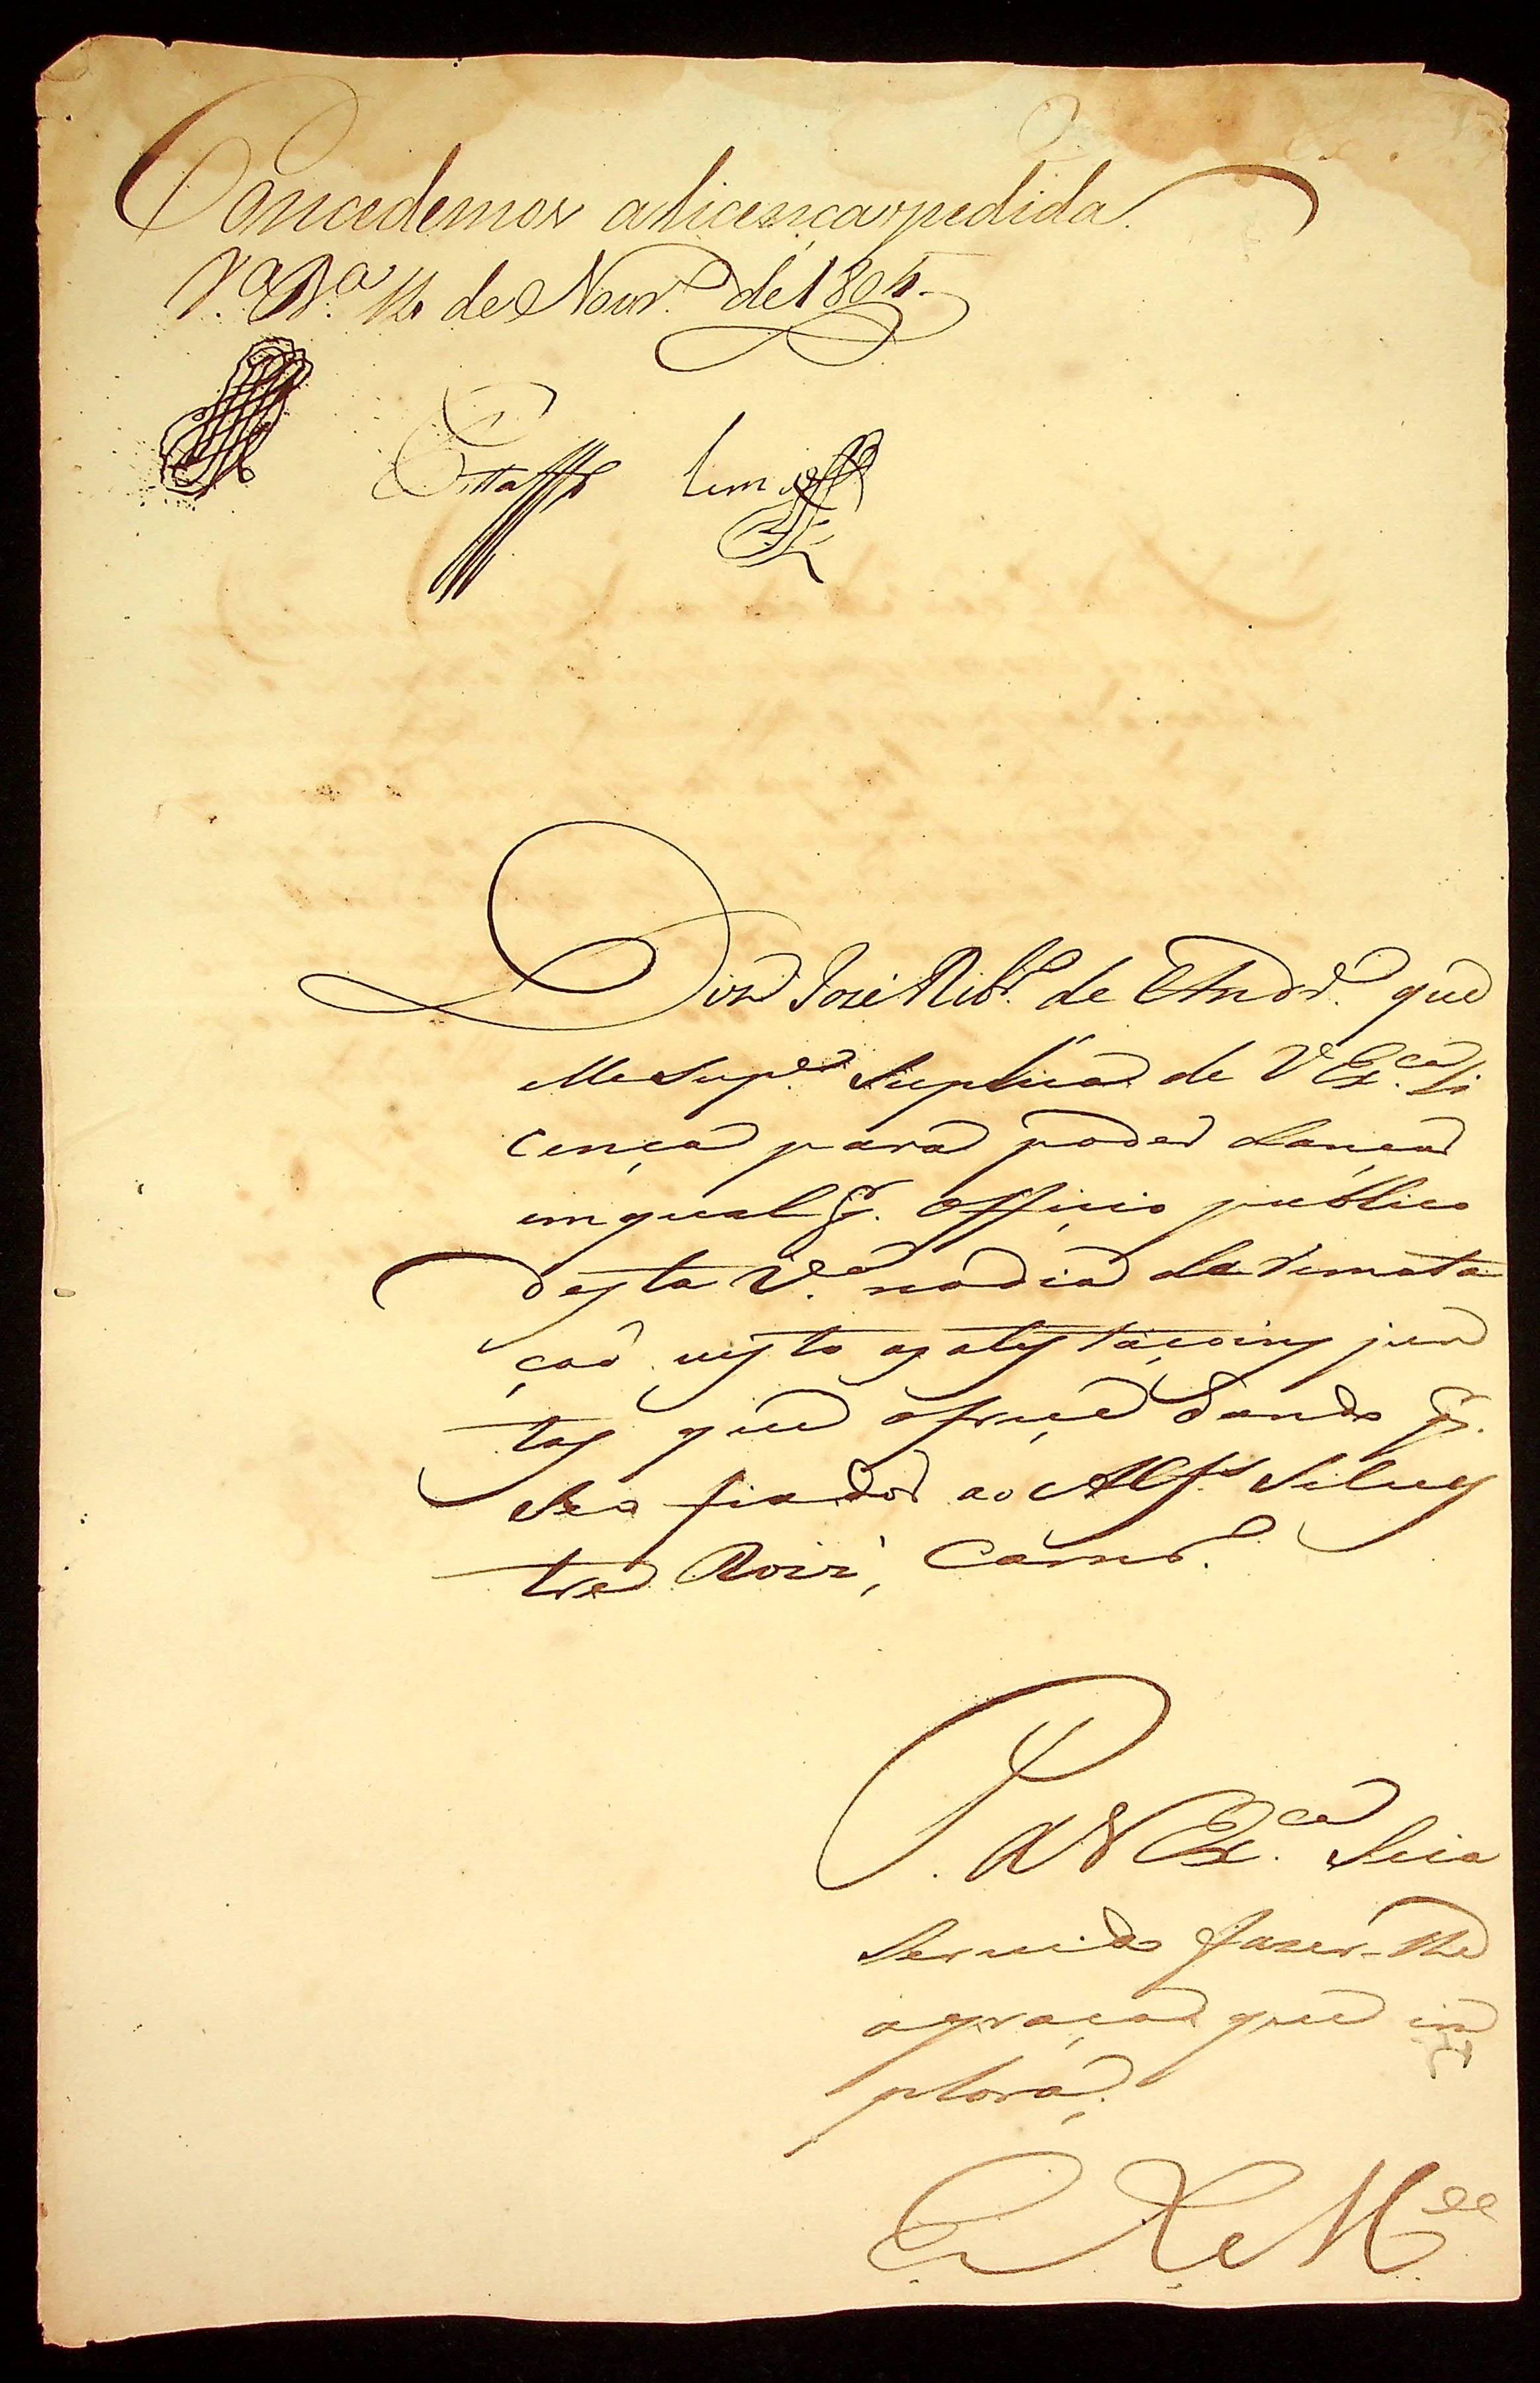 Concedemos a licença pedida.
V.ª R.ª 12 de Novr.º de 180
Diz José Ribr.º de Andr.e que
elle Sup.e Suplica de V Ex.cia li
cença para poder lançar
em qual qr. Officio publico
desta V.ª no dia da remata
ção visto as atestaçoins jun
tas que ofreçe dando pr.
seo fiador ao Alfs. Silves
tre Roiz', Carnr.º
P. a V Ex.cia Seia
Servido fazer-lhe
a graça que im
plora.
E R e M.ce